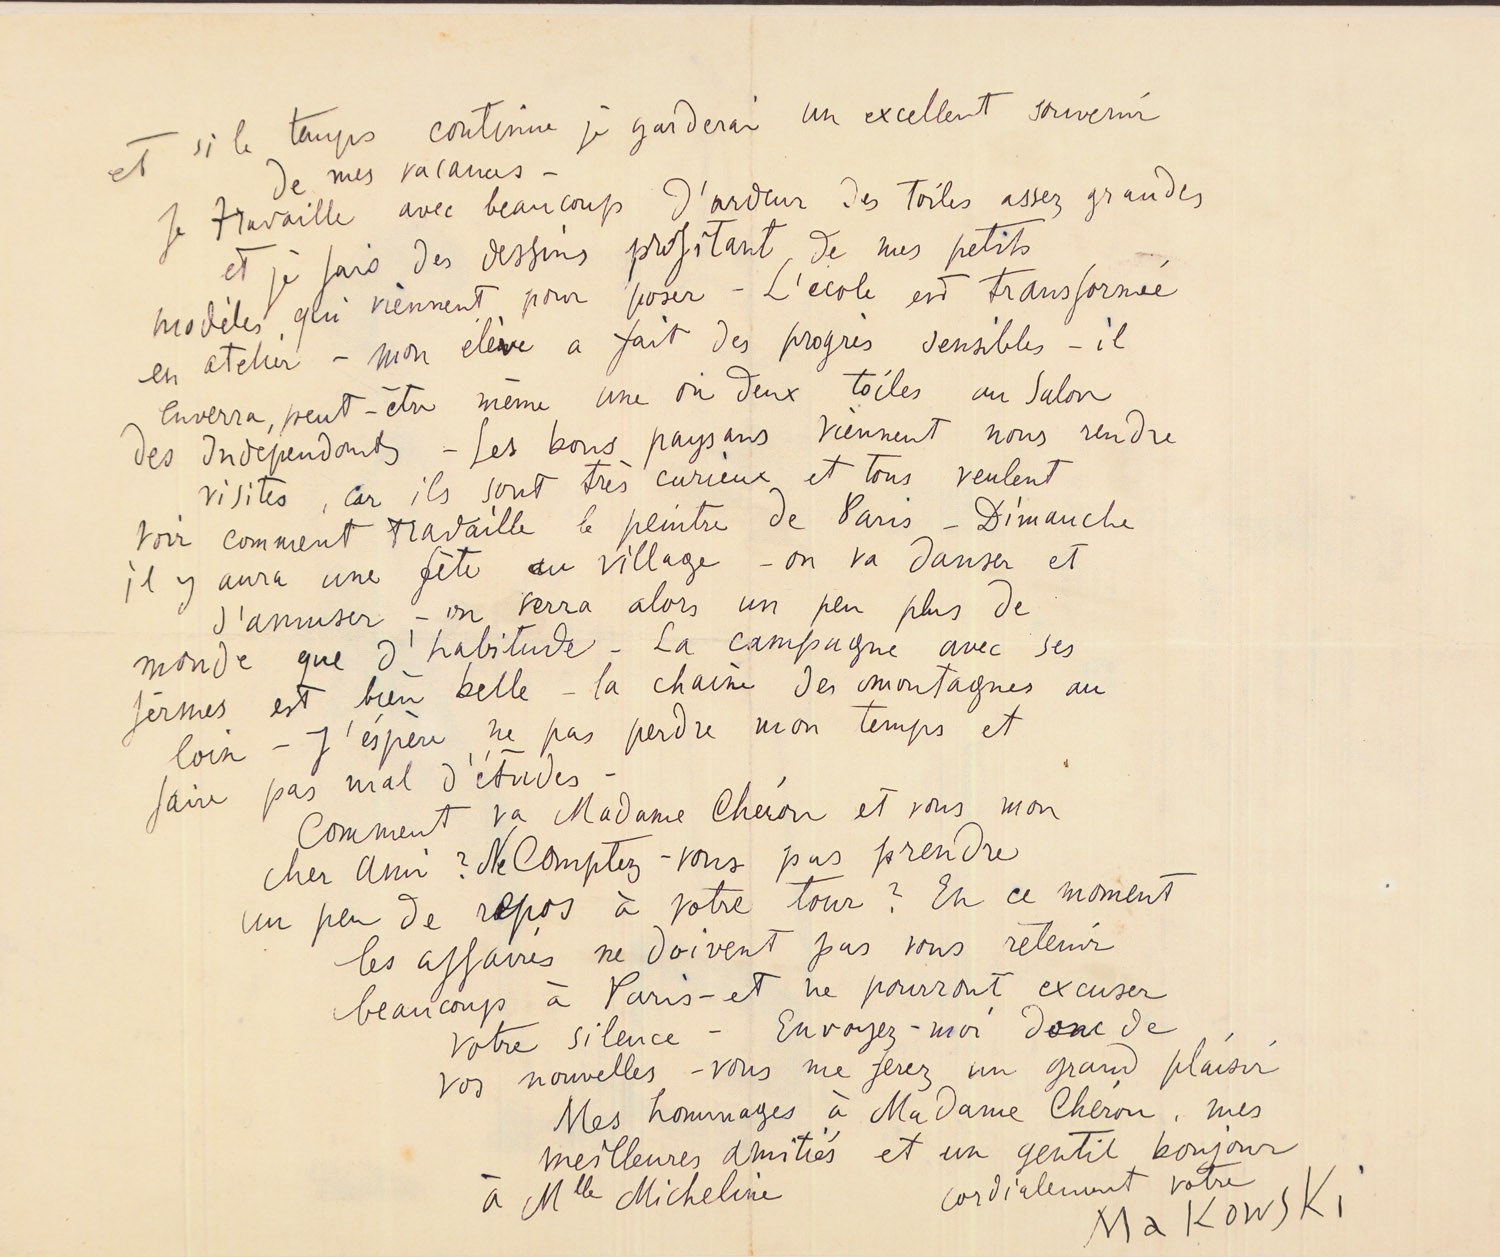 et si le temps continue je garderai un excellent souvenir
de mes vacances -
Je travaille avec beaucoup d'ardeur des toiles assez grandes
et je fais des dessins profitant de mes petits
modèles qui viennent pour poser - L'école est transformée
en atelier - mon elève a fait des progrès sensibles - il
enverra, peut-être même une ou deux toiles au Salon
des Indépendants - Les bons paysans viennent nous rendre
visites, car ils sont très curieux et tous veulent
voir comment travaille le peintre de Paris - Dimanche
il y aura une fête au village - on va danser et
s'amuser - on verra alors un peu plus de
monde que d'habitude - La campagne avec ses
fermes est bien belle - la chaine des montagnes au
loin - J'éspère ne pas perdre mon temps et
faire pas mal d'études -
Comment va Madame Chéron et vous mon
cher Ami ? Ne Comptez-vous pas prendre
un peu de repos à votre tour ? En ce moment
les affaires ne doivent pas vous retenir
beaucoup à Paris - et ne pourront excuser
votre silence - Envoyez-moi donc de
vos nouvelles - vous me ferez un grand plaisir
Mes hommages à Madame Chéron, mes
meilleures amitiés et un gentil bonjour
à Mlle Micheline cordialement votre
Makowski